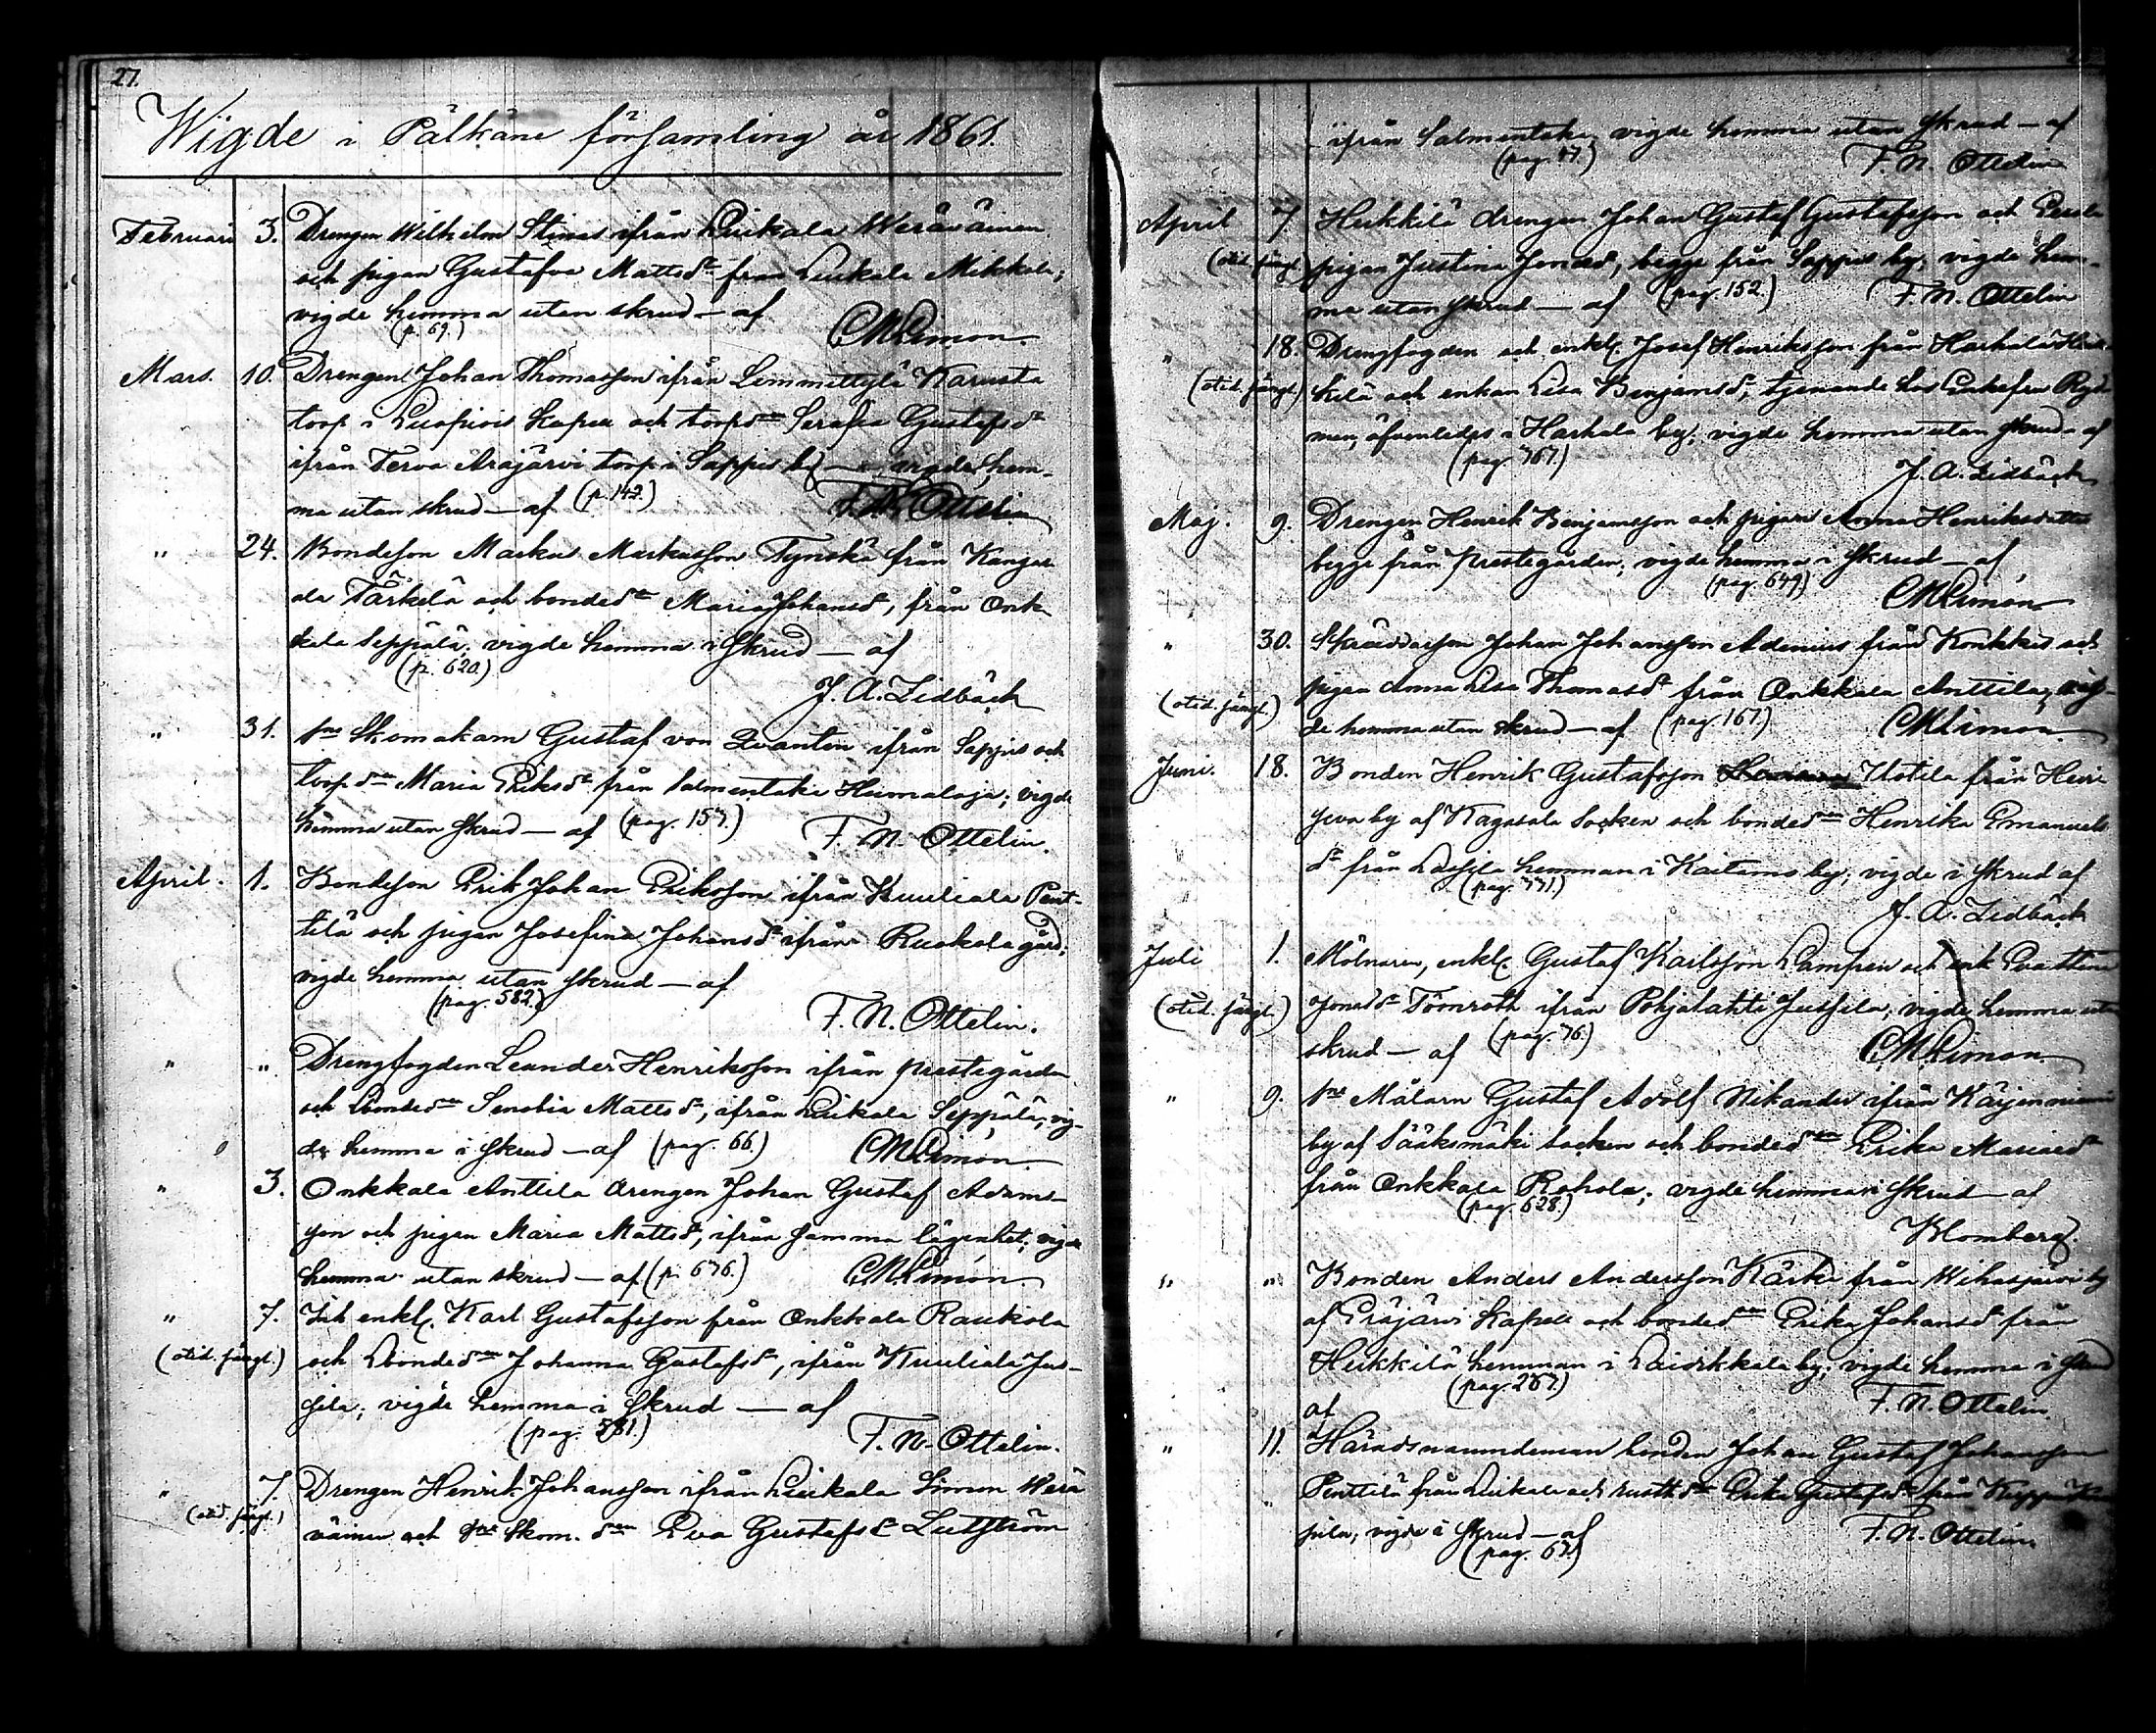 27.
Wigde i Pälkäne församling år 1861.
Februari 3. Drengen Wilhelm Stinas ifrån Luikala Weräväinen
och pigan Gustafva Mattsdr från Luikala Mikkola;
vigde hemma utan skrud — af
(p. 69.) CMLimon.
Mars. 10. Drengen Johan Thomasson ifrån Lemmittylä Karusta
torp i Luopiois Kapell och torpdrn Serafia Gustafsdr
ifrån Terva Arajärvi torp i Sappis by — vigde hem-
ma utan skrud — af (p. 142.) F. N. Ottelin
" 24. Bondeson Markus Markusson Tynskä från Kangas
ala Tärkelä och bondedrn Maria Johansdr, från Onk
kala Seppälä; vigde hemma i skrud — af
(p. 620.)
J. A. Lidbäck
" 31. Sne Skomakarn Gustaf von Qvanten ifrån Sappis och
torpdrn Maria Eriksdr från Salmentaka Heimalaja; vigde
hemma utan skrud — af (pag. 157.) F. N. Ottelin.
April. 1. Bondeson Erik Johan Eriksson ifrån Kuuliala Pent-
tilä och pigan Josefina Johansdr ifrån Ruokola gård;
vigde hemma utan skrud — af
(pag. 582.)
F. N. Ottelin.
" " Drengfogden Leander Henriksson ifrån prestegården
och bondedrn Senobia Mattsdr, ifrån Luikala Seppälä; vig-
de hemma i skrud — af (pag. 66.) CMLimon.
" 3. Onkkala Anttila drengen Johan Gustaf Adams-
son och pigan Maria Mattsdr, ifrån samma lägenhet; vigde
hemma utan skrud — af (p. 676.) CMLimon.
" 7. Inh enkl. Karl Gustafsson från Onkkala Raukola
(otid. fängl.) och bondedrn Johanna Gustafsdr, ifrån Kuuliala Jus-
sila; vigde hemma i skrud — af
(pag. 581.) F. N. Ottelin.
" 7. Drengen Henrik Johansson ifrån Luikala Simun Werä
(otid. fängl.) väinen och Sne Skom. drn Eva Gustafsdr Lutström
ifrån Salmentaka, vigde hemma utan skrud — af
(pag. 47.) F. N. Ottelin
April 7 Heikkilä drengen Johan Gustaf Gustafsson och
(otid. fängl.) pigan Justina Jonasdr, begge från Sappis by; vigde hem-
ma utan skrud — af (pag. 152.) F. N. Ottelin
" 18. Drengfogden och enkl. Josef Henriksson från Harhala Heik
(otid. fängl.) kilä och enkan Lisa Benjamsdr, tjenande hos
i Harhala by; vigde hemma utan skrud af
(pag. 767.)
J. A. Lidbäck
Maj. 9. Drengen Henrik Benjamsson och pigan Anna Henriksdotter
begge från prestegården; vigde hemma i skrud — af
(pag. 649.)
CMLimon.
" 30. Skräddarson Johan Johansson Adenius från Kankkis och
(otid. fängl.) pigan Anna Lisa Thomasdr från Onkkala Anttila; vig-
de hemma utan skrud — af (pag. 167.) CMLimon.
Juni. 18. Bonden Henrik Gustafsson Uotila från
by af Kagasala Socken och bondedrn Henrika Emanuels
dr från hemman i Kaitamo by; vigde i skrud af
(pag. 771.)
J. A. Lidbäck
Juli 1. Mölnaren, enkl. Gustaf Karlsson Lampen och enk Eva Stina
(otid. fängl.) Jonasdr Törnroth ifrån Pohjalahti Jussila, vigde hemma utan
skrud — af (pag. 76.) CMLimon
" 9. Sne Målarn Gustaf Adolf Nikander ifrån Kärjenniemi
by af Sääksmäki Socken och bondedrn Erika Mariaedr
från Onkkala Rohola; vigde hemma i skrud — af
(pag. 628.)
Blomberg.
" " Bonden Anders Andersson Kärke från Wihasjärvi by
af Eräjärvi Kapell och bondedrn Erika Johansdr från
Heikkilä hemman i Laidikkala by; vigde hemma i skrud
(pag. 267.)
af F. N. Ottelin.
" 11. Häradsnämndeman bonden Johan Gustaf Johansson
Penttilä från Luikala och rusthdrn Erika Gustafsdr från
pila; vigde i skrud — af F. N. Ottelin.
(pag. 67.)